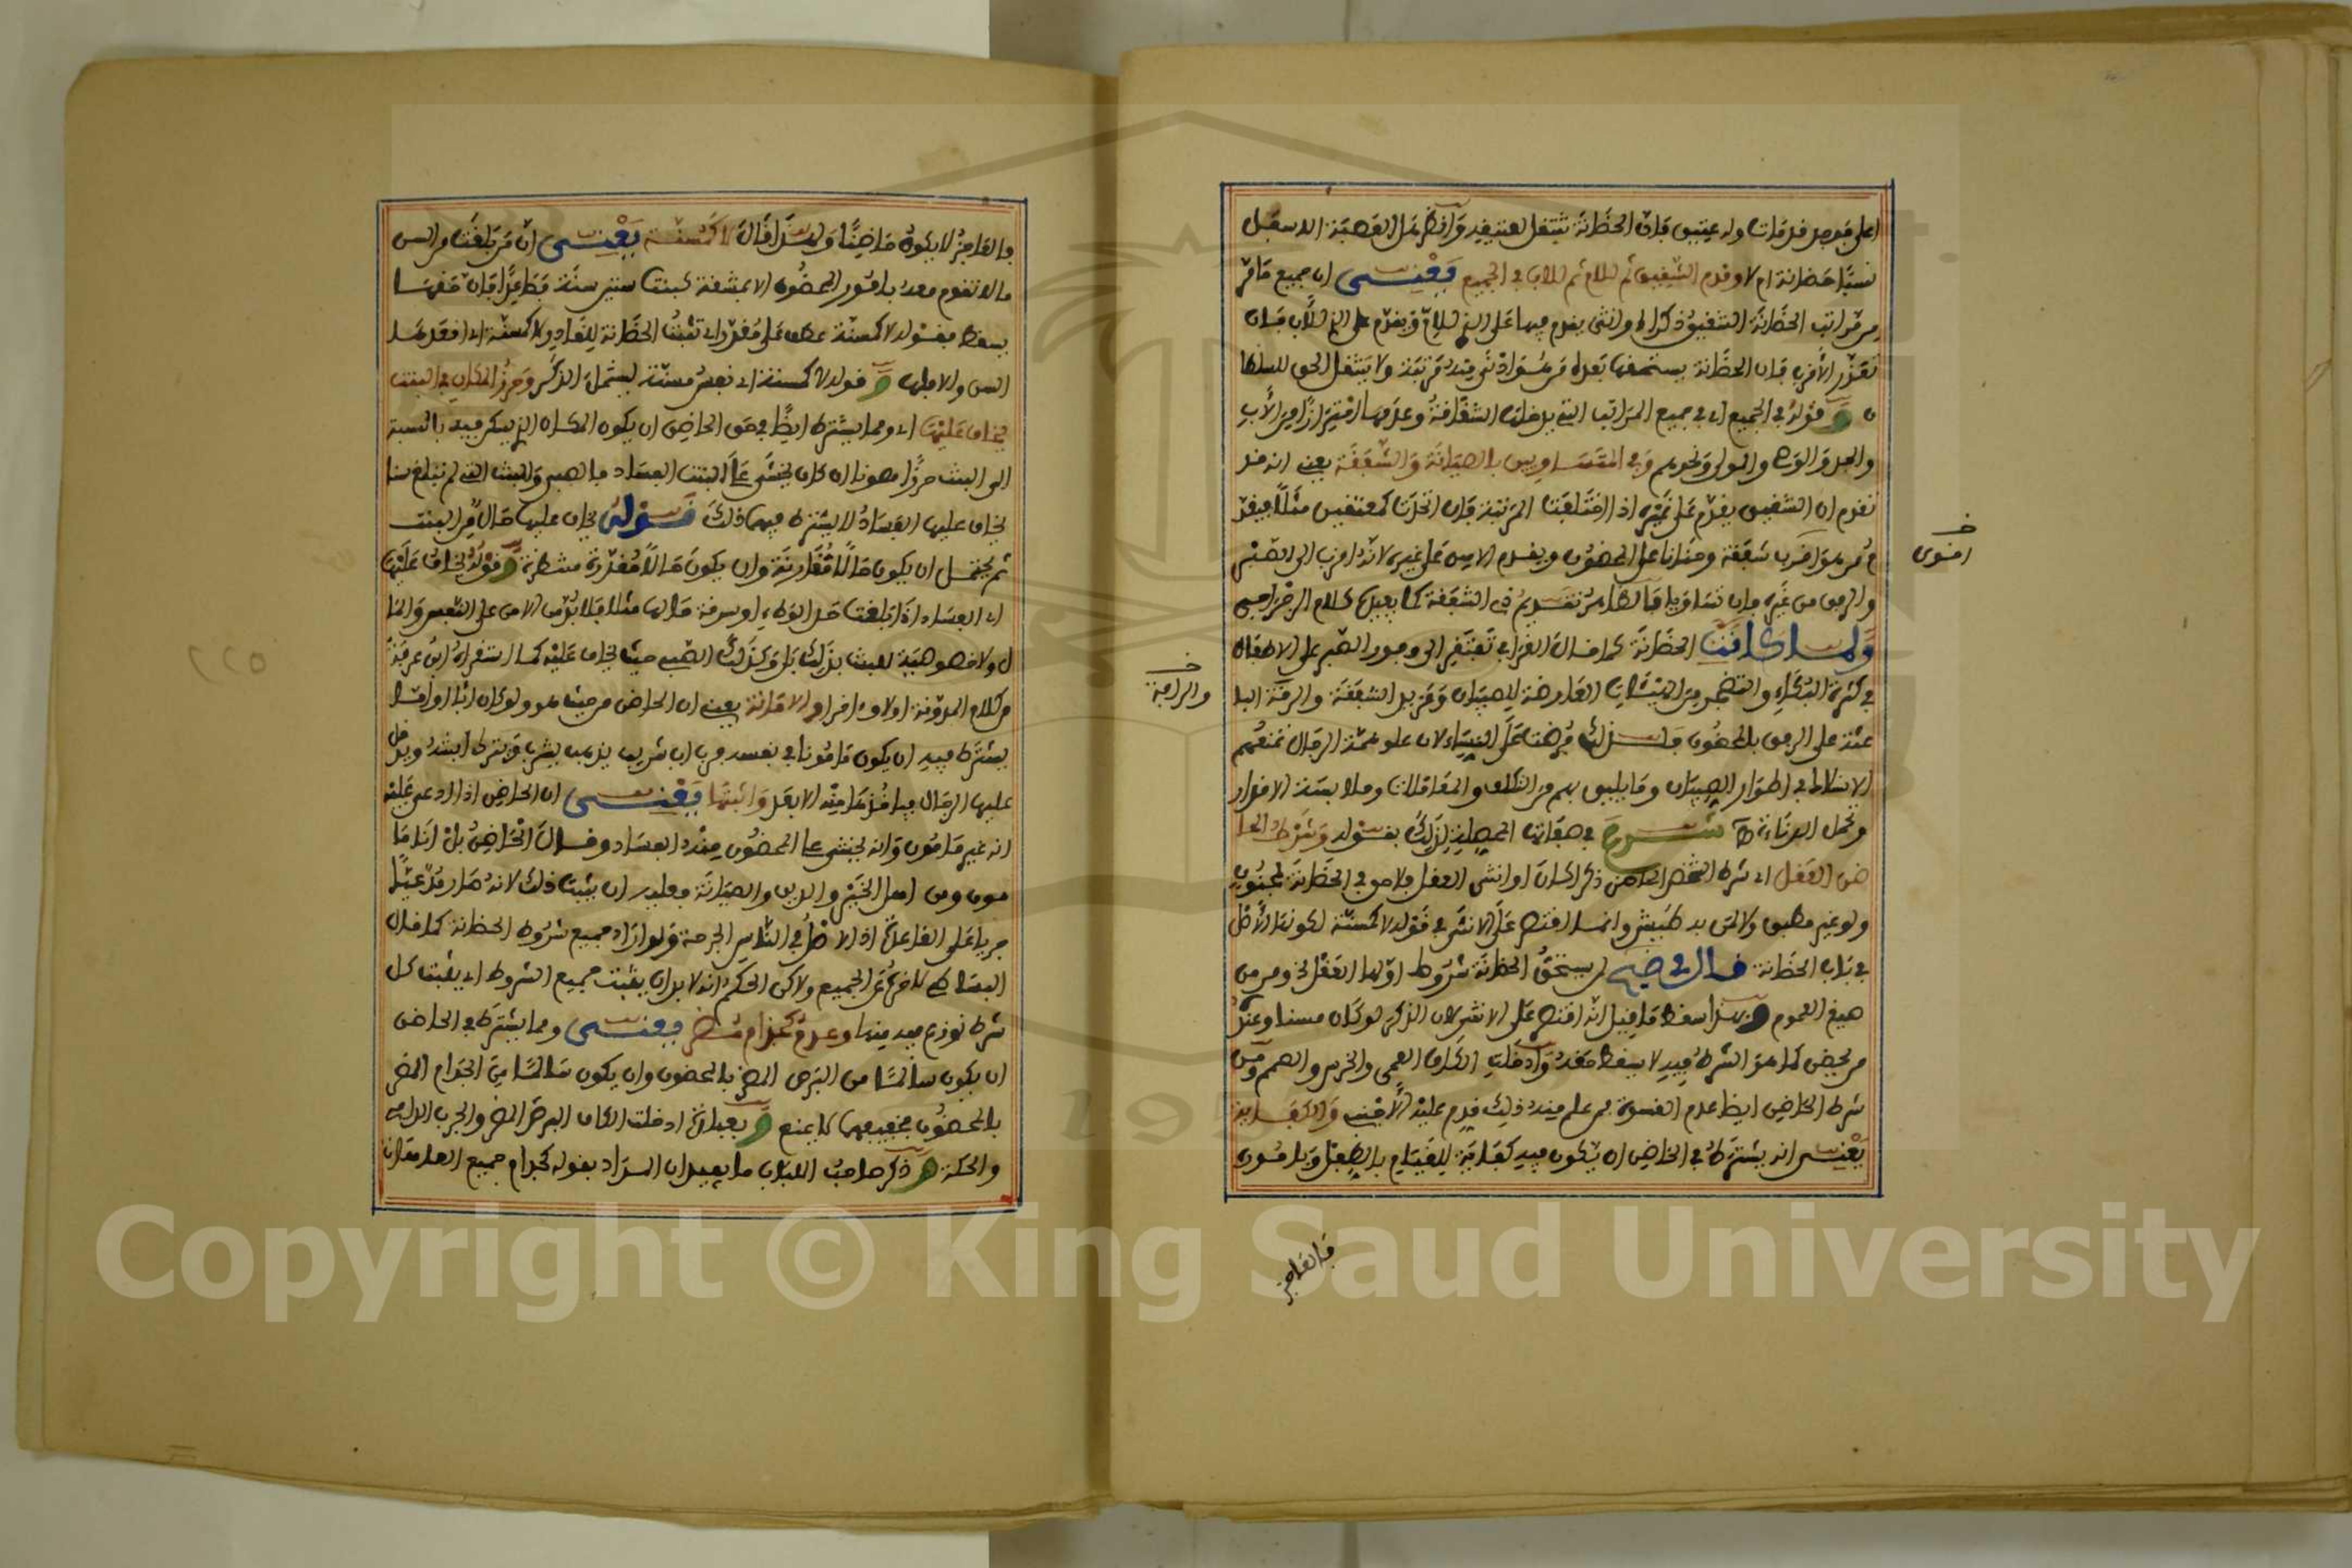 اعلى فوجد قد مات وله عتيق فإن الحظانة تنتقل لعتيقه وانظر هل العصبة الاسفل
نسبًا حضانة ام لا وقدم الشفيق ثم للام ثم للاب في الجميع يعنى ان جميع ما مر
من مراتب الحضانة الشقيق ذكرا او انثى يقدم فيها على الذي للام ويقدم على الذي للاب فان
الاقرب فان الحضانة يستحقها بعده من هو ادنى منه مرتبة ولا ينتقل الحق للسلطا
ن وقوله في الجميع اي في جميع المراتب التي يدخلها الشقاقة وعدمها احترازا من الأب
والجد والوصي والمولى ونحوهم وفي المتساويين بالصيانة والشفقة يعني انه قد
تقدم ان الشقيق يقدم على غيره اذا اختلفت المرتبة فان اتحدت كمعتقين مثلا فيقد
م من هو اقرب شفقة وحنانا على المحضون ويقدم الاسن على غيره لانه اقرب الى الصبر
والرفق من غيره وان تساويا فالظاهر تقديم ذي الشفقة كما يفيده كلام الرجراجي
ولما كانت الحضانة كما قال القرافي تفتقر الى وجود الصبر على الاطفال
في كثرة البكاء والتضجر من الهيئات العارضة للصبيان ومزيد الشفقة والرقة البا
عثة على الرفق بالمحضون فلذلك فرضت على النساء لان علو همة الرجال تمنعهم
الانسلاك في اطوار الصبيان وما يليق بهم من التكلف والمعاملات وملابسة الاقذار
وتحمل الدناءة شرع في صفات المحصلة لذلك بقوله وشرط الحا
ضن العقل اي شرط الشخص الحاضن ذكرا كان او انثى العقل فلا حق في الحظانة لمجنون
ولو غير مطبق ولا لمن به طيش وانما اقتصر على الانثى في قوله لا كمسنة لكونها الأصل
في باب الحضانة قال في ضيح لمستحق الحظانة شروط اولها العقل الخ ومن من
صيغ العموم وبهذا سقط ما قيل انه اقتصر على الانثى لان الذكر لو كان مسنا وعنده
من يحضن كما هو الشرط فيه لا يسقط حقه وادخلت الكاف العمى والخرس والصمم ومن
شرط الحاضن ايضا عدم القسوة فمن علم منه ذلك قدم عليه الأجنبى والكفاية
يعنى انه يشترط في الحاضن ان يكون فيه كفاية للقيام بالطفل وباموره
اقوى
والراحة
فالعاجز
فالعاجز لا يكون حاضنا ولهذا قال لا كمسنة يعنى ان من بلغت من السن
ما لا تقوم معه بامور المحضون الا بمشقة كبنت ستين سنة فصاعدا فان حقها
يسقط فقوله لا كمسنة عطف على مقدر اي تثبت الحظانة للقادر لا كمسنة اي اقعدها
السن والا فلها وقوله لا كمسنة اي نفس مسنة ليشمل الذكر وحرز المكان في البنت
يخاف عليها اي ومما يشترط ايضًا في حق الحاضن ان يكون المكان الذي يسكن فيه بالنسبة
الى البنت حرزا مصونا ان كان يخشى على البنت الفساد فالصبي والبنت التي لم تبلغ سنا
يخاف عليها الفساد لا يشترط فيهما ذلك قوله يخاف عليها حال من البنت
ثم يحتمل ان يكون حالا مقارنة وان يكون حالا مقدرة منتظرة وقوله يخاف عليها
اي الفساد اذا بلغت حد الوطء او سرقة مالها مثلا فلا بد من الامن على النفس والما
ل ولا خصوصية للبنت بذلك بل وكذلك الصبي حيث يخاف عليه كما استقرأه ابن عرفة
من كلام المدونة اولا واخرا والامانة يعني ان الحاضن من حيث هو ولو كان ابا او اما
يشترط فيه ان يكون مامونا في نفسه فرب اب شريب يذهب يشرب ويترك ابنته ويدخل
عليها الرجال فيأخذها منه الابعد واثبتها يعنى ان الحاضن اذا ادعى عليه
انه غير مامون وانه يخشى على المحضون منه الفساد وقال الحاضن بل انا ما
مون ومن اهل الخير والدين والصيانة فعليه ان يثبت ذلك لانه صار مدعيًا
جريا على القاعدة اذ الاصل في الناس الجرحة ولو اراد جميع شروط الحظانة كما قال
البساطي لاخره عن الجميع ولكن الحكم انه لا بد ان يثبت جميع الشروط اي يثبت كل
شرط نوزع فيه منها وعدم كجذام مضر يعنى ومما يشترط في الحاضن
ان يكون سالما من البرص المضر بالمحضون وان يكون سالما من الجذام المضر
بالمحضون فخفيفهما لا يمنع وبعبارة ادخلت الكاف البرص المضر والجرب الدامي
والحكة وذكر صاحب اللباب ما يفيد ان المراد بقوله كجذام جميع العاهات
٢٢٥
Copyright © King Saud University
195